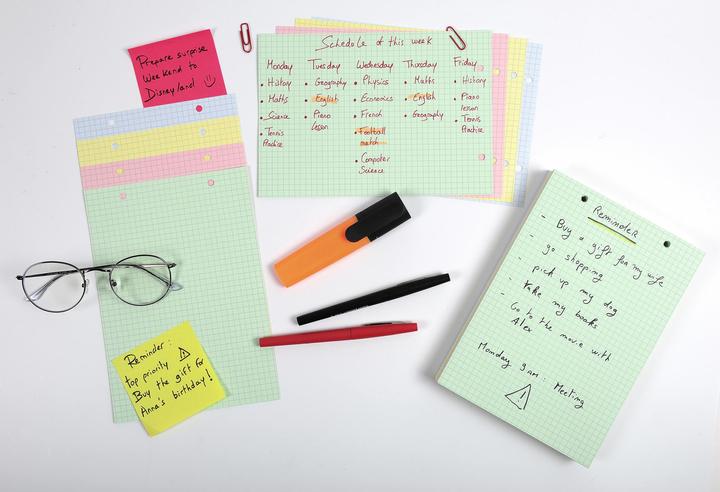 Prepare surprise
Weekend to
Disneyland
Schedule of this week
Monday
• History
• Maths
• Science
• Tennis
Practice
Tuesday
• Geography
• English
• Piano
lesson
Wednesday
• Physics
• Economics
• French
• Football
match
• Computer
Science
Thursday
• Maths
• English
• Geography
Friday
• History
• Piano
lesson
• Tennis
Practice
Reminder :
top priority
Buy the gift for
Anna's birthday!
Reminder
- Buy a gift for my wife
- go shopping
- pick up my dog
- Take my books
- Go to the movie with
Alex
Monday 9am : Meeting
!